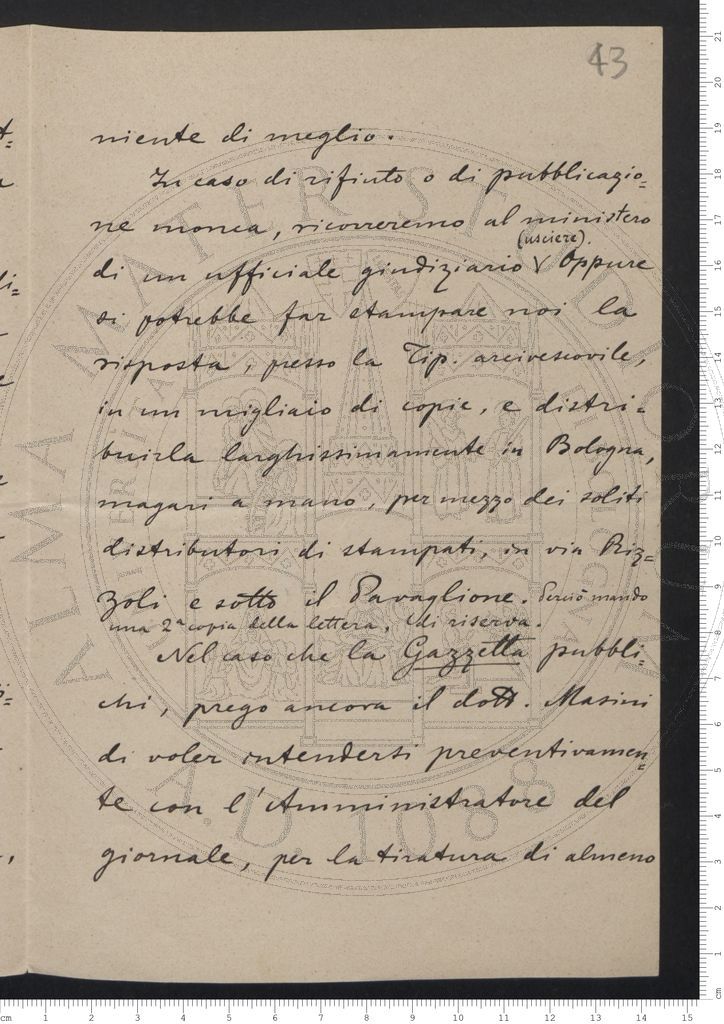 43
niente di meglio.
In caso di rifiuto o di pubblicazio=
ne monca, ricorreremo al ministero
(usciere).
di un ufficiale giudiziario V Oppure
si potrebbe far stampare noi la
risposta, presso la Tip. arcivescovile,
in un migliaio di copie, e distri-
buirla larghissimamente in Bologna,
magari a mano, per mezzo dei soliti
distributori di stampati, in via Riz=
zoli e sotto il Pavaglione. Perciò mando
una 2ª copia della lettera, di riserva.
Nel caso che la Gazzetta pubbli-
chi, prego ancora il dott. Masini
di voler intendersi preventivamen=
te con l'Amministratore del
giornale, per la tiratura di almeno
ALMA MATER STUDIORUM
A.D. 1088